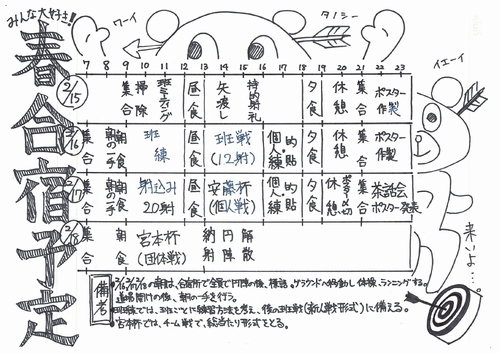 みんな大好き!!
春合宿予定
ワーイ
タノシー
イエーイ
7 8 9 10 11 12 13 14 15 16 17 18 19 20 21 22 23
2/15 集合 掃除 班ミーティング 昼食 矢渡し 持的射礼 夕食 休憩 集合 ポスター作製
2/16 集合 朝の手 朝食 班練 昼食 班戦(12射) 個人練 的貼 夕食 休憩 集合 ポスター作製
2/17 集合 朝の手 朝食 射込み20射 昼食 安藤杯(個人戦) 個人練 的貼 夕食 休憩 茶話会 ポスター発表
2/18 集合 朝食 宮本杯(団体戦) 納射 円陣 解散
来いよ…。
備考
・2/16,2/17,2/18の朝は、合宿所で全員で円陣の後、体操、ランニングする。
道場開けの後、朝の手を行う。
・班練では、班ごとに練習方法を考え、後の班戦(新人戦形式)に備える。
・宮本杯では、チーム戦で、総当たり形式をとる。